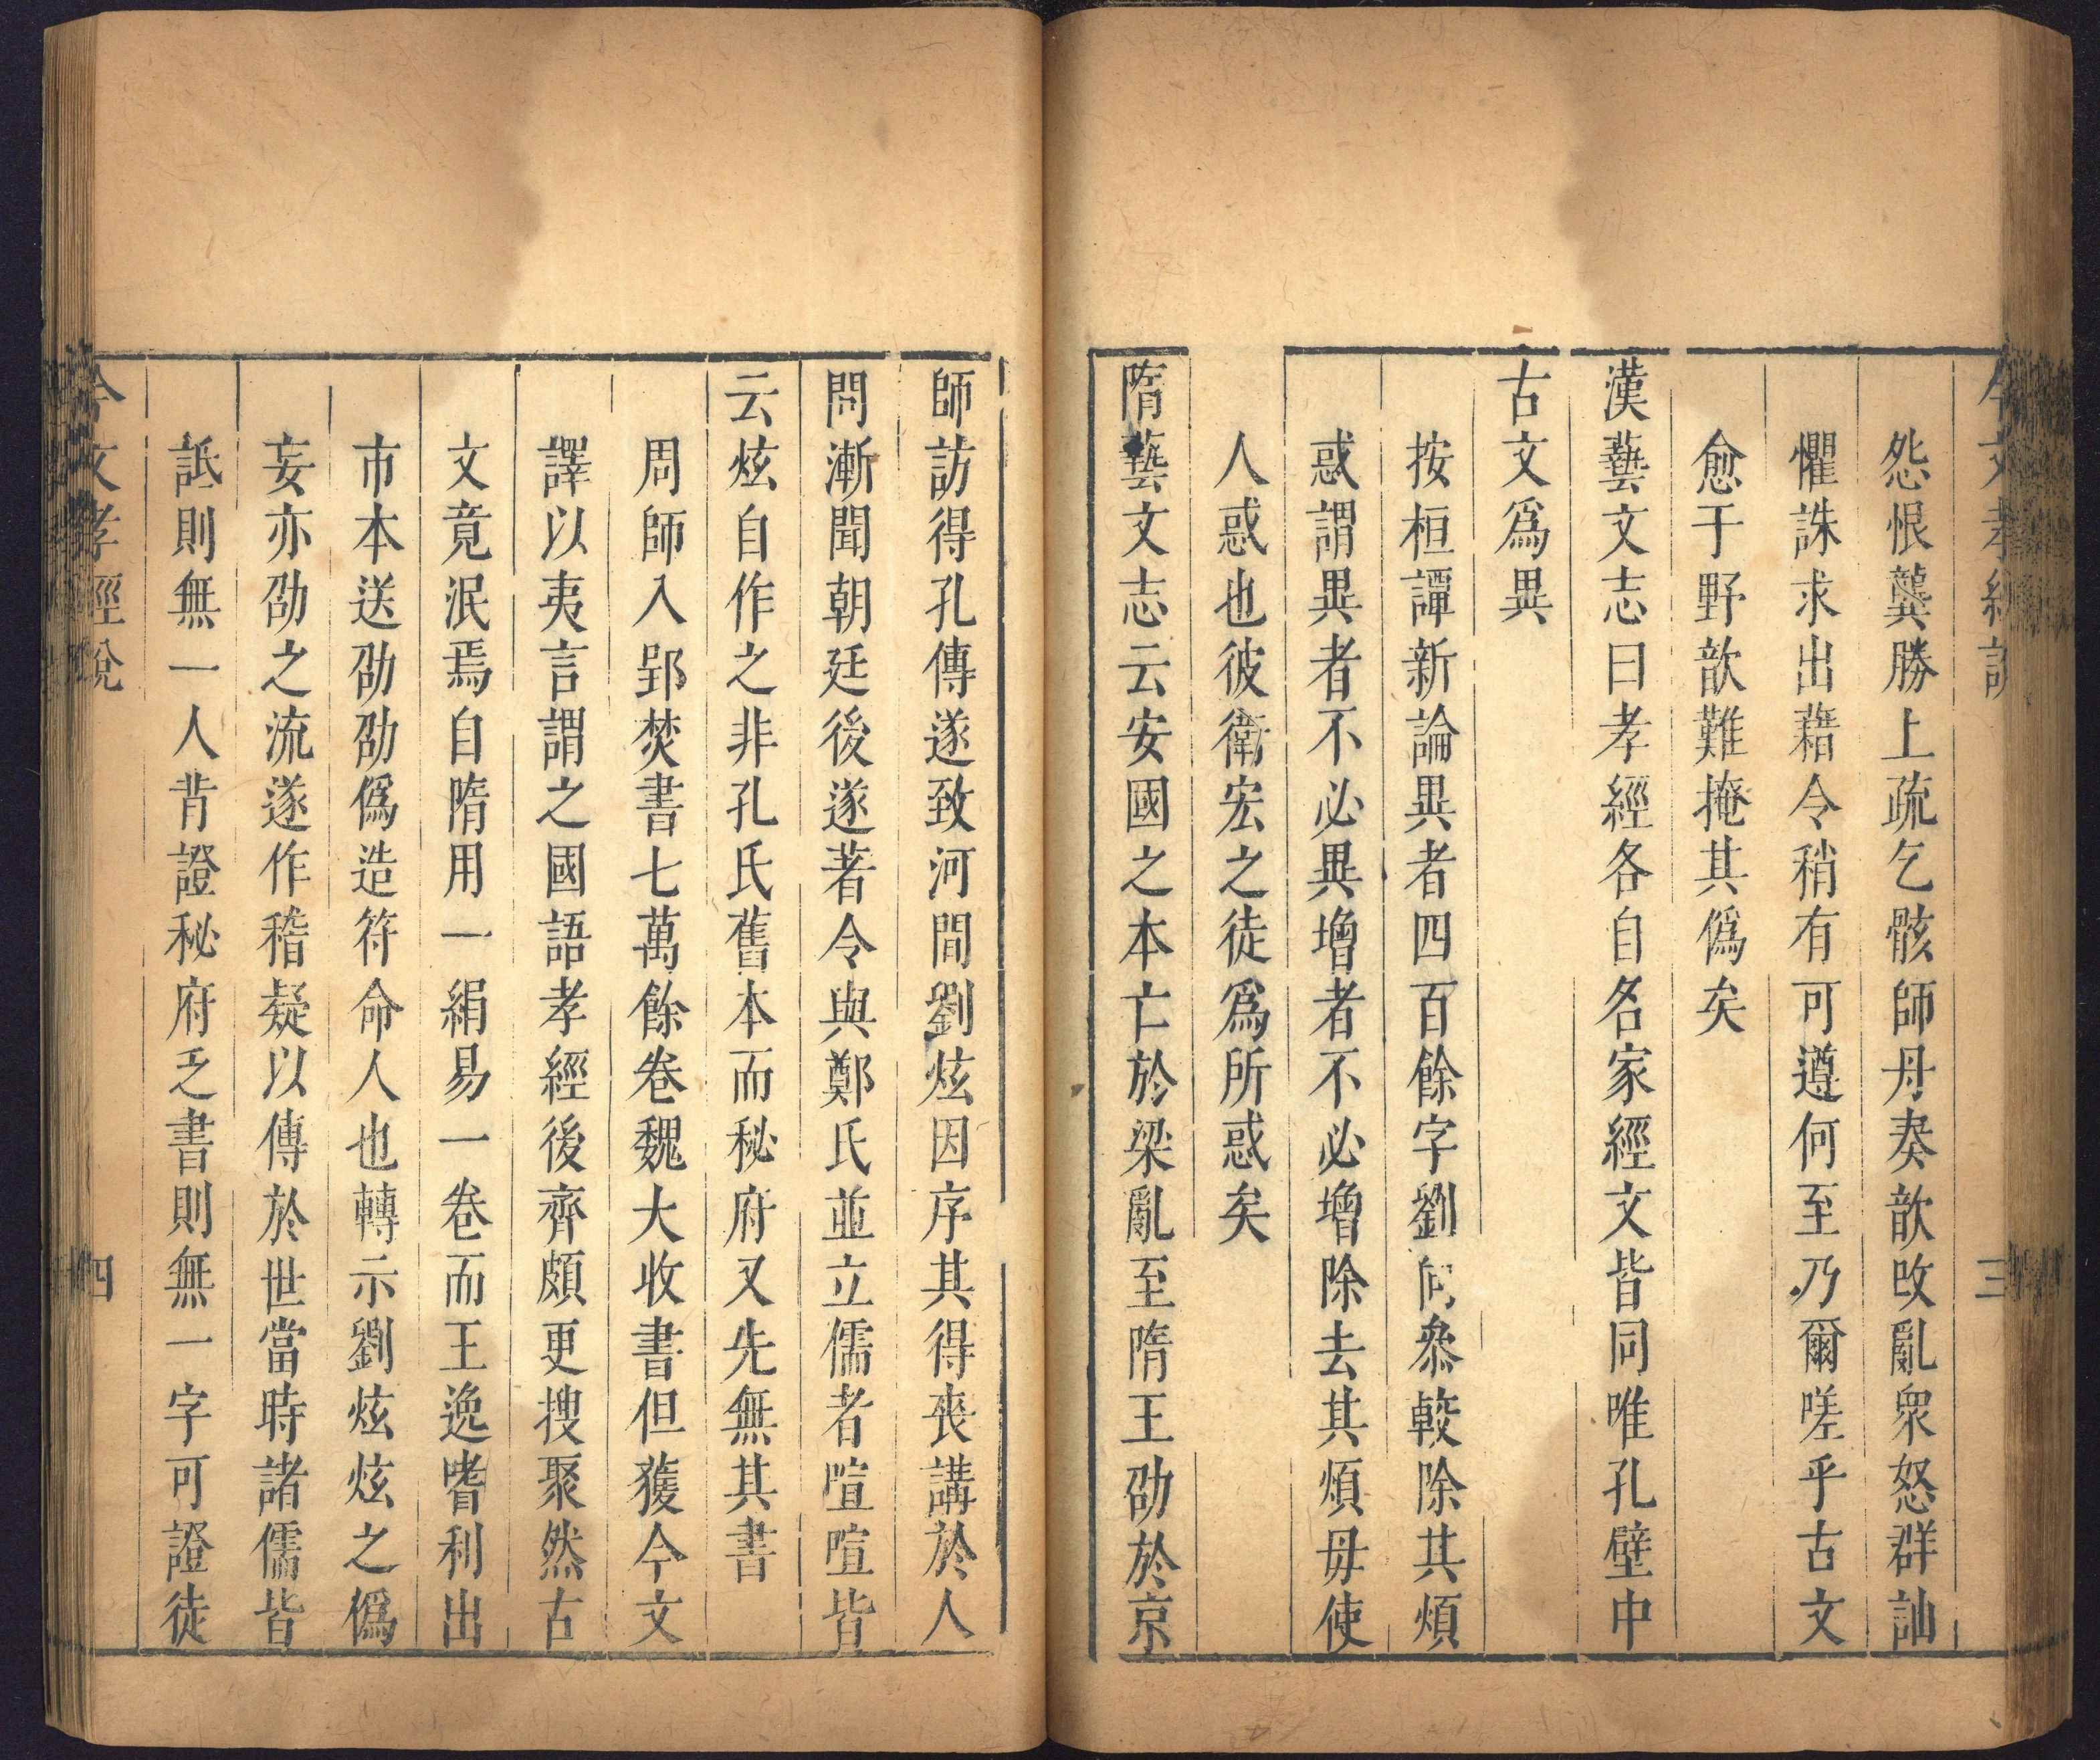 今文孝經說
三
怨恨龔勝上疏乞骸師丹奏歆改亂衆怒群訕
懼誅求出藉令稍有可遵何至乃爾嗟乎古文
愈于野歆難掩其僞矣
漢藝文志曰孝經各自名家經文皆同唯孔壁中
古文爲異
按桓譚新論異者四百餘字劉向叅較除其煩
惑謂異者不必異增者不必增除去其煩毋使
人惑也彼衛宏之徒爲所惑矣
隋藝文志云安國之本亡於梁亂至隋王劭於京
師訪得孔傳遂致河間劉炫因序其得喪講於人
間漸聞朝廷後遂著令與鄭氏並立儒者喧喧皆
云炫自作之非孔氏舊本而秘府又先無其書
周師入郢焚書七萬餘卷魏大收書但獲今文
譯以夷言謂之國語孝經後齊頗更搜聚然古
文竟泯焉自隋用一絹易一卷而王逸嗜利出
市本送劭劭僞造符命人也轉示劉炫炫之僞
妄亦劭之流遂作稽疑以傳於世當時諸儒皆
詆則無一人肯證秘府乏書則無一字可證徒
今文孝經說
四